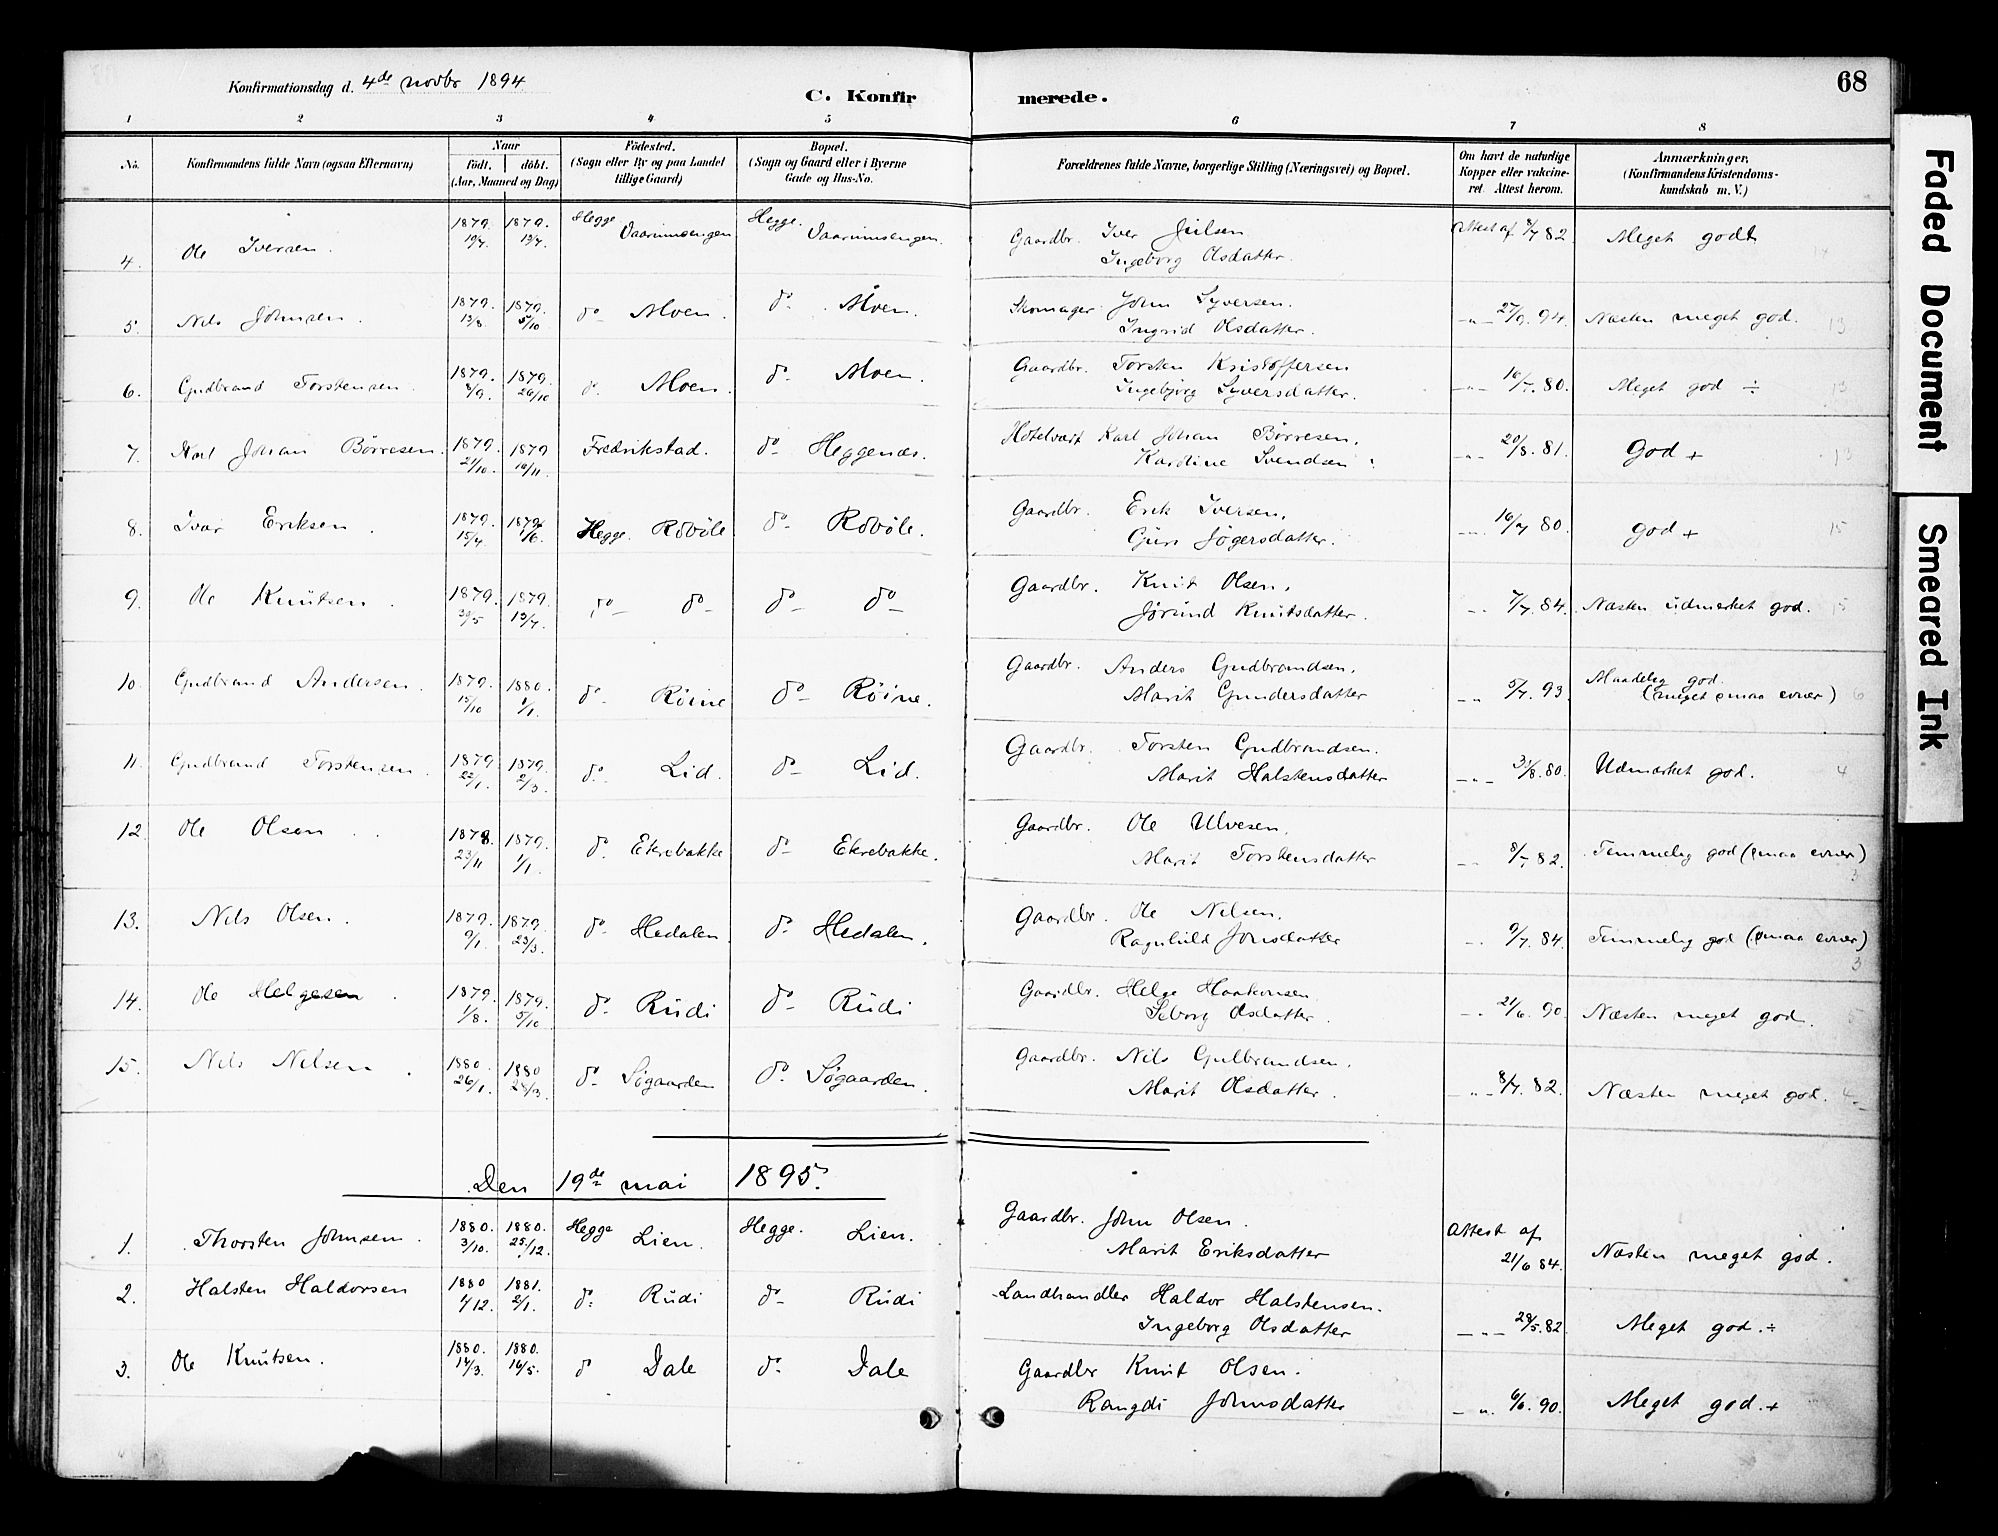 Konfirmationsdag d. 4de novbr 1894
C. Konfirmerede.
68
1 2 3 4 5 6 7 8
No. Konfirmandens fulde Navn (ogsaa Efternavn) Naar født. døbt. (Aar, Maaned og Dag) Fødested. (Sogn eller By og paa Landet tillige Gaard) Bopæl. (Sogn og Gaard eller i Byerne Gade og Hus-No. Forældrenes fulde Navne, borgerlige Stilling (Næringsvei) og Bopæl. Om havt de naturlige Kopper eller vakcineret. Attest herom. Anmærkninger, (Konfirmandens Kristendomskundskab m. V.)
4. Ole Iversen. 1879. 1879. Hegge Vaarumsengen Hegge. Vaarumsengen. Gaardbr. Iver Juilsen Attest af 8/7 82 Meget godt
Ingeborg Olsdatter.
5. Nils Johnsen. 1879. 13/8. 1879. 5/10 do Moen. do Moen. Skomager John Syversen. 27/9. 94. Næsten meget god. 13
Ingrid Olsdatter.
6. Gudbrand Torstensen. 1879. 8/9. 1879. 26/10 do Moen. do Moen. Gaardbr. Torsten Kristoffersen 80. Meget god ÷ 13
Ingebjørg Syversdatter.
7. Karl Johan Børresen. 1879. 21/10. 1879 16/11. Fredrikstad. do Heggenæs. Hotelvært Karl Johan Børresen, 20/8. 81. God + 13
Karoline Svendsen
8. Ivar Eriksen. 1879. 15/4. 1879. 1/6. Hegge. Røvøle do Røvøle. Gaardbr. Erik Iversen, 16/7 80. god + 15
Guri Jøgersdatter.
9. Ole Knutsen. 1879. 1879. 13/7. do do do do Gaardbr. Knut Olsen, 7/7. 84. Næsten udmerket god. 15
Jørund Knutsdatter.
10. Gudbrand Andersen. 1879. 15/10 1880. 1/1. do Røine do Røine. Gaardbr. Anders Gudbrandsen. 5/7. 93. Maadelig god. (meget smaa evner) 6
Marit Gundersdatter
11. Gudbrand Torstensen. 1879 22/1. 1879. 2/3. do Lid. do Lid. Gaardbr. Torsten Gudbrandsen. 31/8. 80. Udmerket god. 4
Marit Halstensdatter
12. Ole Olsen. 1878. 23/11 1879. 1/1. do Ekrebakke do Ekrebakke. Gaardbr. Ole Ulvesen, 82. Temmelig god (smaa evner) 3
Marit Torstensdatter
13. Nils Olsen. 1879. 9/1. 1879. 23/3. do Hedalen. do Hedalen. Gaardbr. Ole Nilsen. 9/7. 84. Temmelig god (smaa evner) 3
Ragnhild Jonsdatter
14. Ole Helgesen. 1879. 1/8. 1879. 5/10 do Rudi do Rudi Gaardbr. Helge Haakonsen. 21/6. 90. Næsten meget god.
Seborg Olsdatter.
15. Nils Nilsen. 1880. 26/1. 1880 28/3. do Søgaarden do Søgaarden. Gaardbr. Nils Gulbrandsen. 8/7. 82. Næsten meget god.
Marit Olsdatter.
Den 19de mai 1895.
1. Thorsten Johnsen. 1880. 3/10. 1880. 25/12. Hegge Lien. Hegge. Lien. Gaardbr. John Olsen. Attest af
Marit Eriksdatter 21/6 84. Næsten meget god.
2. Halsten Haldorsen 1880 1/12. 1881. 2/1. do Rudi do Rudi Landhandler Haldor Halstensen.
Ingeborg Olsdatter 29/5. 82. Meget god. ÷
3. Ole Knutsen. 1880. 14/3. 1880. 16/5. do Dale do Dale Gaardbr Knut Olsen.
Rangdi Johnsdatter 6/6. 90. Meget god. +
Faded Document
Smeared Ink